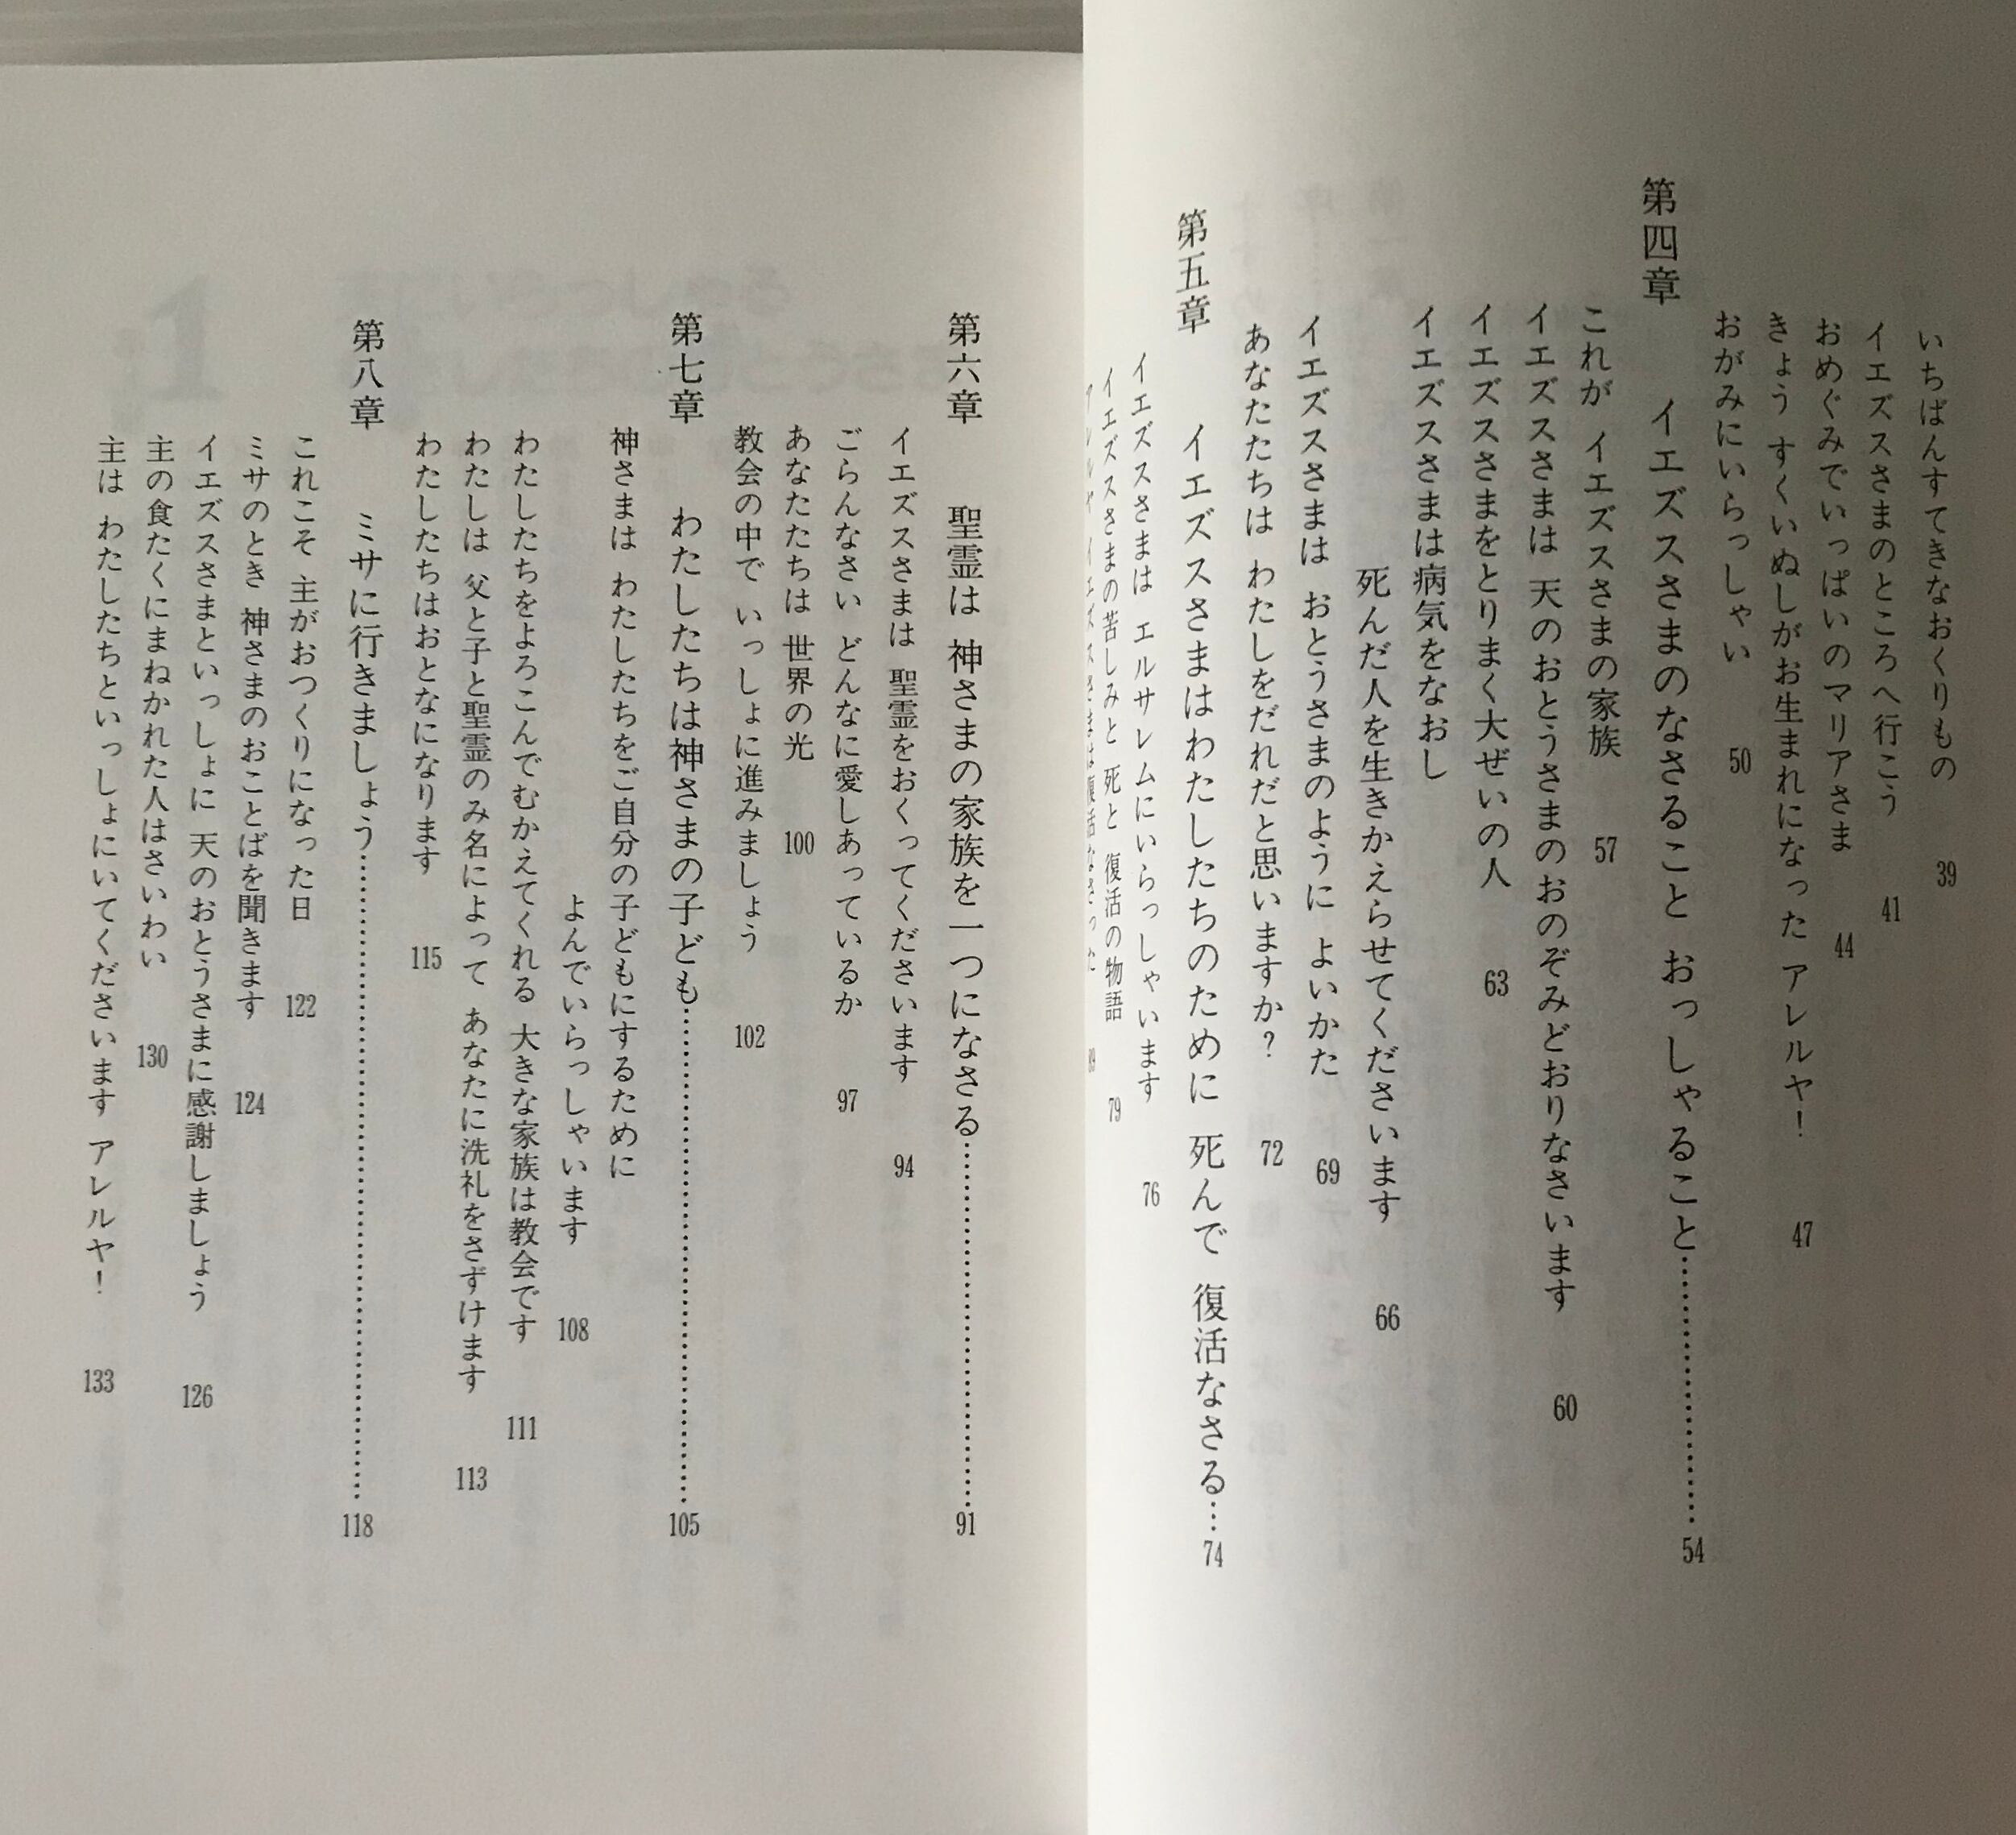 いちばんすてきなおくりもの 39
イエズスさまのところへ行こう 41
おめぐみでいっぱいのマリアさま 44
きょう すくいぬしがお生まれになった アレルヤ！ 47
おがみにいらっしゃい 50
第四章 イエズスさまのなさること おっしゃること……………… 54
これが イエズスさまの家族 57
イエズスさまは 天のおとうさまのおのぞみどおりなさいます 60
イエズスさまをとりまく大ぜいの人 63
イエズスさまは病気をなおし
死んだ人を生きかえらせてくださいます 66
イエズスさまは おとうさまのように よいかた 69
あなたたちは わたしをだれだと思いますか？ 72
第五章 イエズスさまはわたしたちのために 死んで 復活なさる… 74
イエズスさまは エルサレムにいらっしゃいます 76
イエズスさまの苦しみと 死と 復活の物語 79
アレルヤ イエズスさまは復活なさった 89
第六章 聖霊は 神さまの家族を一つになさる……………… 91
イエズスさまは 聖霊をおくってくださいます 94
ごらんなさい どんなに愛しあっているか 97
あなたたちは 世界の光 100
教会の中で いっしょに進みましょう 102
第七章 わたしたちは神さまの子ども……………… 105
神さまは わたしたちをご自分の子どもにするために
よんでいらっしゃいます 108
わたしたちをよろこんでむかえてくれる 大きな家族は教会です 111
わたしは 父と子と聖霊のみ名によって あなたに洗礼をさずけます 113
わたしたちはおとなになります 115
第八章 ミサに行きましょう……………… 118
これこそ 主がおつくりになった日 122
ミサのとき 神さまのおことばを聞きます 124
イエズスさまといっしょに 天のおとうさまに感謝しましょう 126
主の食たくにまねかれた人はさいわい 130
主は わたしたちといっしょにいてくださいます アレルヤ！ 133